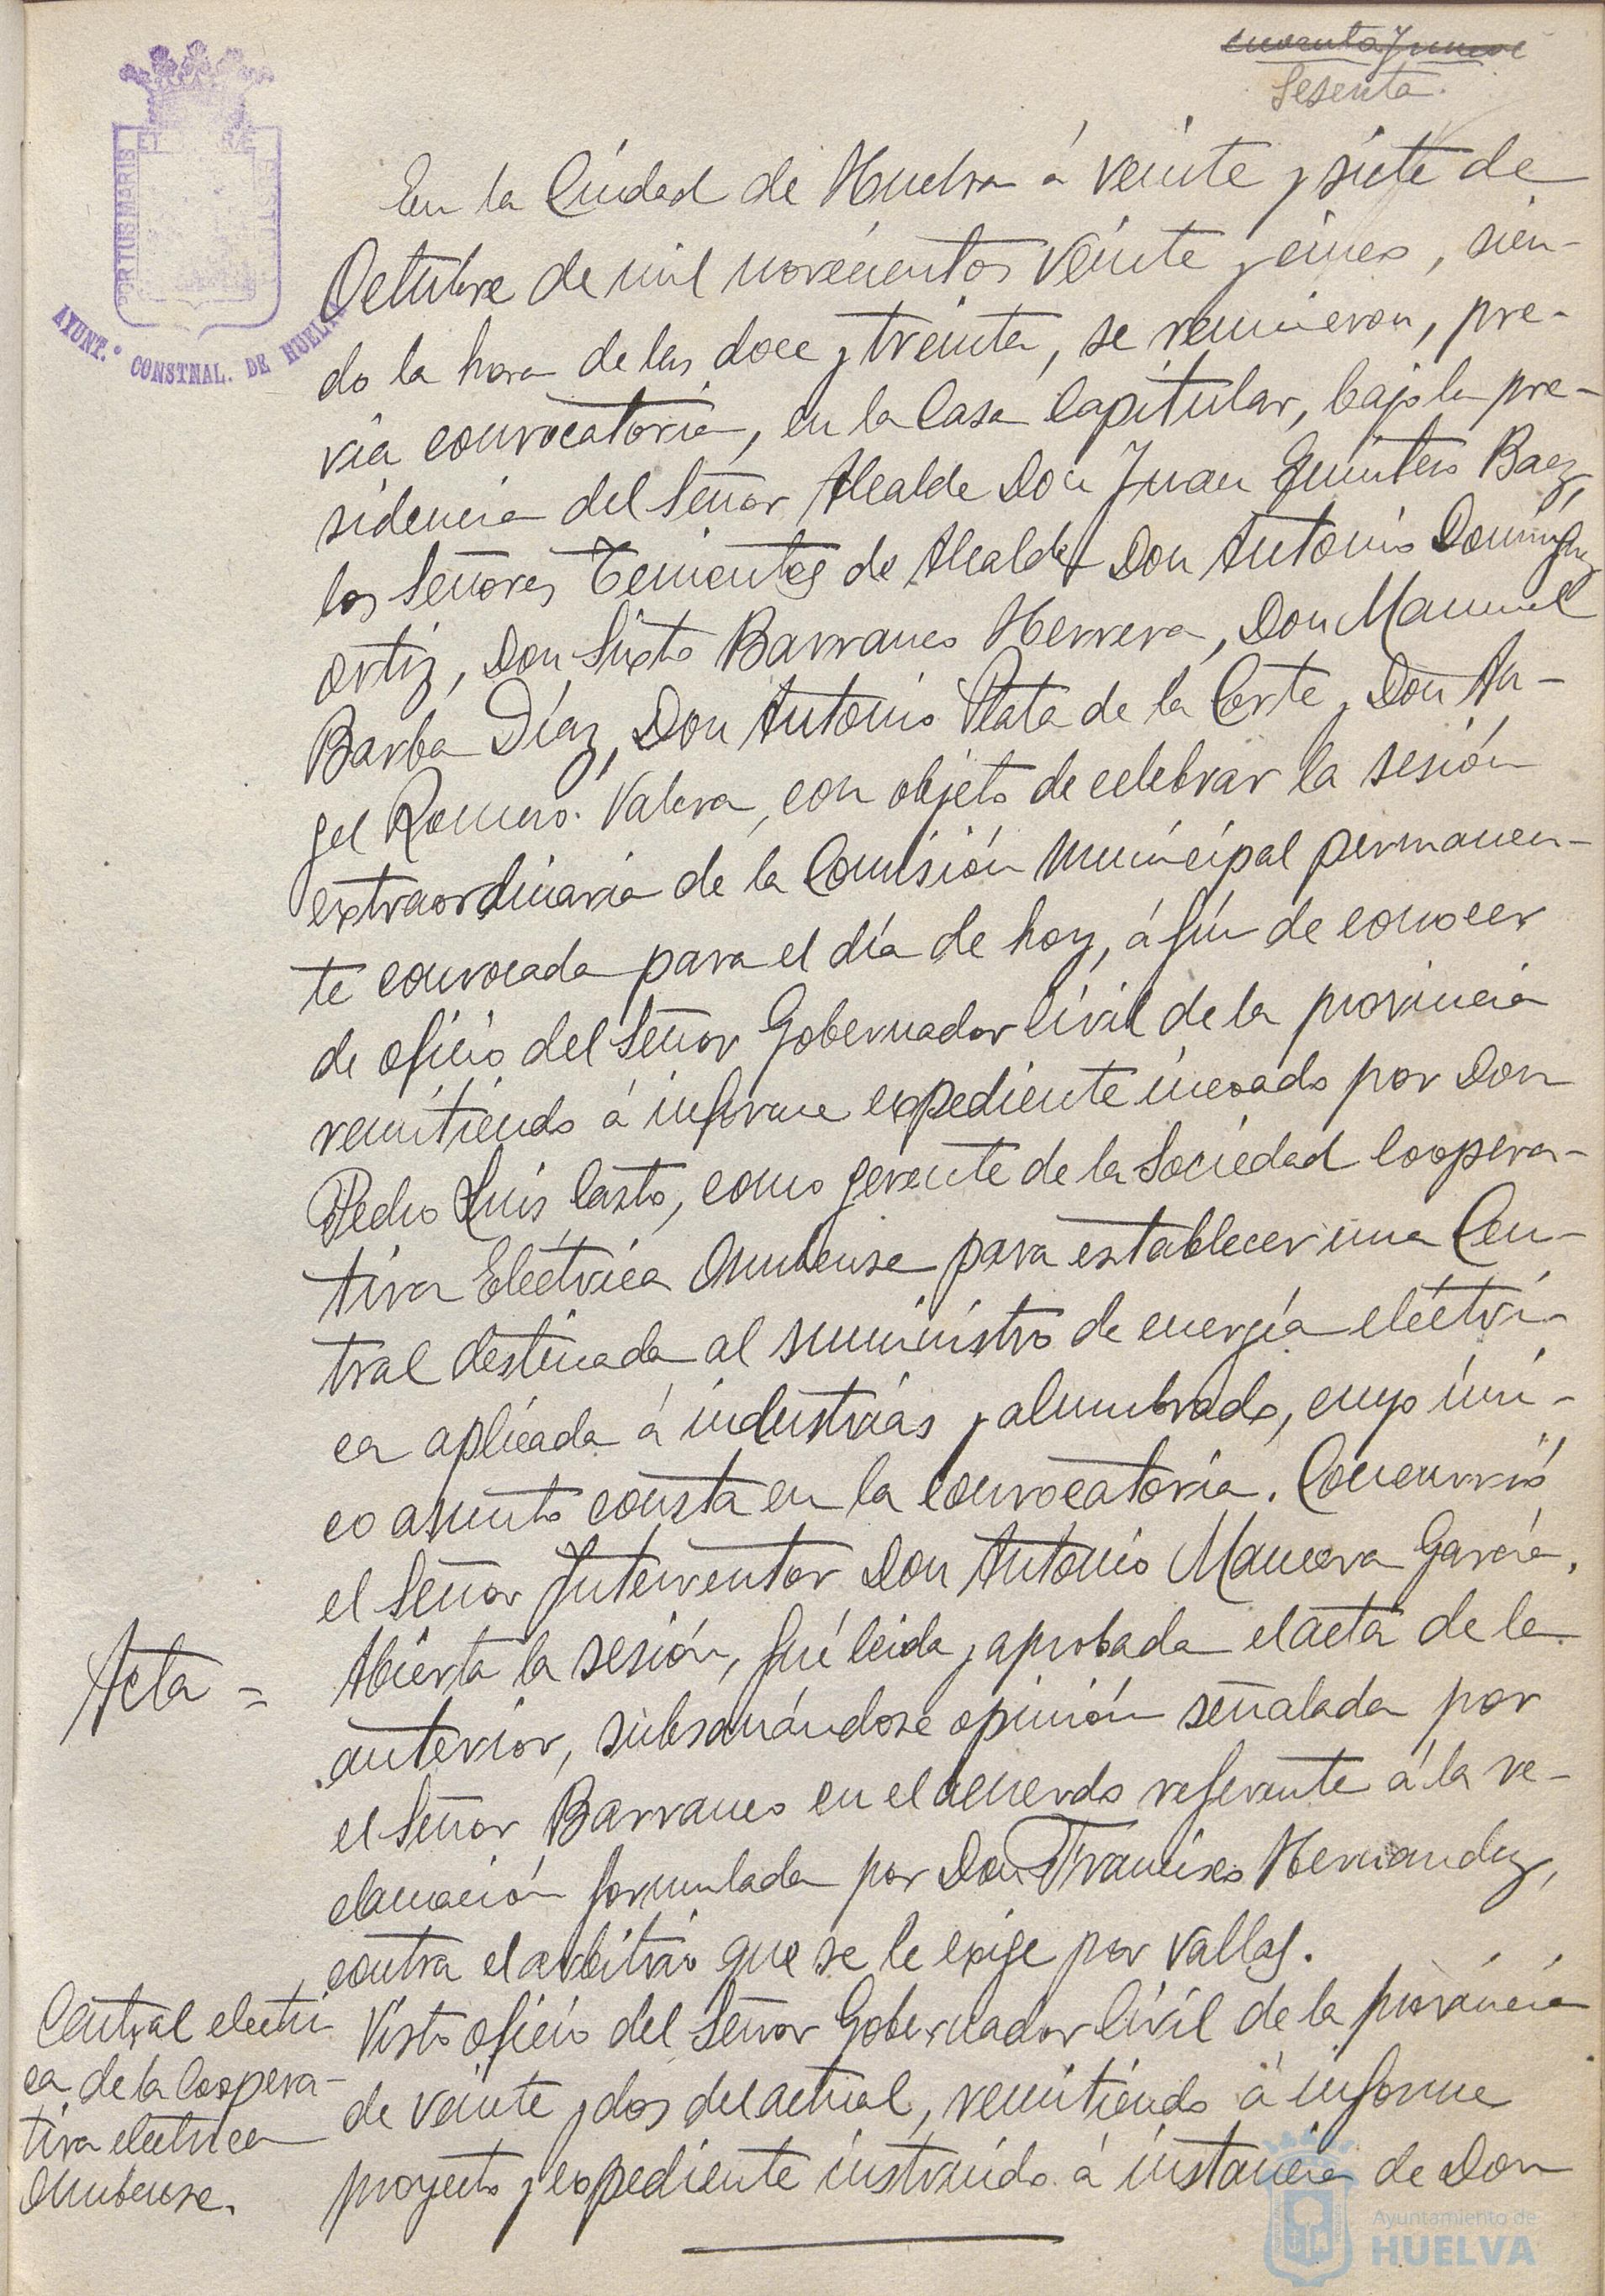 cuarenta y nueve
Sesenta.
PORTUS MARIS ET
AYUNT.º CONSTNAL. DE HUELVA
En la Ciudad de Huelva á veinte y siete de
Octubre de mil novecientos veinte y cinco, sien-
do la hora de las doce y treinta, se reunieron, pre-
via convocatoria, en la Casa Capitular, bajo la pre-
sidencia del Señor Alcalde Don Juan Quintero Baez,
los Señores Tenientes de Alcalde Don Antonio Domínguez
Ortiz, Don Sixto Barranco Herrera, Don Manuel
Barba Díaz, Don Antonio Plata de la Corte y Don An-
gel Romero Valera, con objeto de celebrar la sesión
extraordinaria de la Comisión Municipal permanen-
te convocada para el día de hoy, á fín de conocer
de oficio del Señor Gobernador Civil de la provincia
remitiendo á informe expediente incoado por Don
Pedro Luis Casto, como gerente de la Sociedad Coopera-
tiva Eléctrica Onubense para establecer una Cen-
tral destinada al suministro de energía eléctri-
ca aplicada á industrias y alumbrado, cuyo úni-
co asunto consta en la convocatoria. Concurrió
el Señor Interventor Don Antonio Mancera García.
Acta = Abierta la sesión, fué leida y aprobada el acta de la
anterior, subsanándose opinión señalada por
el Señor Barranco en el acuerdo referente á la re-
clamación formulada por Don Francisco Hernandez,
contra el arbitrio que se le exige por vallas.
Central electri
ca de la Coopera-
tiva electrica
Onubense.
Visto oficio del Señor Gobernador Civil de la provincia
de veinte y dos del actual, remitiendo á informe
proyecto y expediente instruido á instancia de Don
Ayuntamiento de
HUELVA